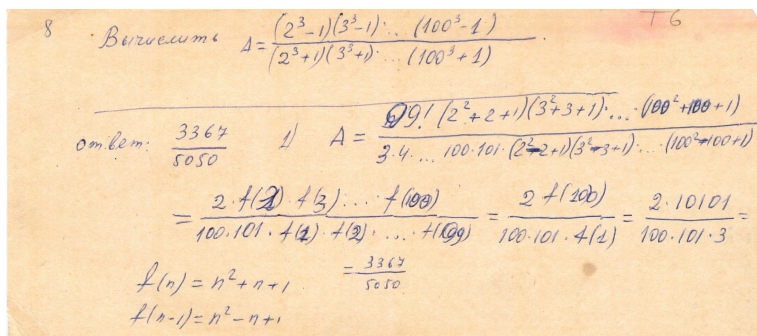 8 Вычислить A = \frac{(2^3-1)(3^3-1)\cdot\ldots(100^3-1)}{(2^3+1)(3^3+1)\cdot\ldots(100^3+1)}. Т6
ответ: \frac{3367}{5050} 1) A = \frac{99!(2^2+2+1)(3^2+3+1)\cdot\ldots\cdot(100^2+100+1)}{3\cdot4\cdot\ldots100\cdot101\cdot(2^2-2+1)(3^2-3+1)\cdot\ldots(100^2-100+1)}
= \frac{2\cdot f(2)\cdot f(3)\ldots f(100)}{100\cdot101\cdot f(1)\cdot f(2)\cdot\ldots\cdot f(99)} = \frac{2f(100)}{100\cdot101\cdot f(1)} = \frac{2\cdot10101}{100\cdot101\cdot3} =
f(n) = n^2+n+1 = \frac{3367}{5050}
f(n-1) = n^2-n+1